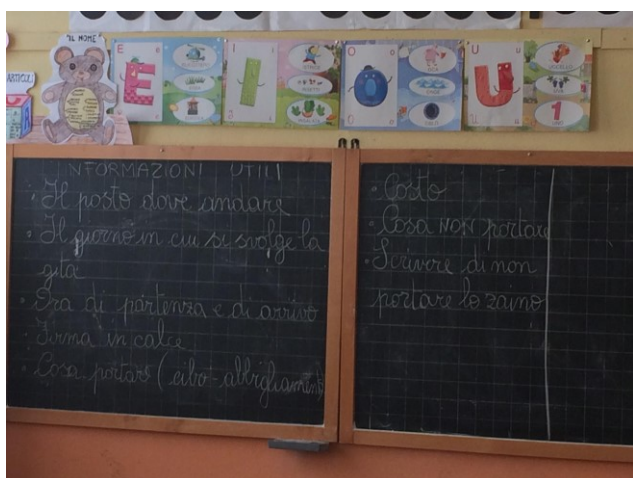 "IL NOME"
ARTICOLI
E
I
O
U
U
1
INFORMAZIONI UTILI
· Il posto dove andare
· Il giorno in cui si svolge la
gita
· Ora di partenza e di arrivo
· Firma in calce
· Cosa portare (cibo-abbigliament
· Costo
· Cosa NON portare
· Scrivere di non
portare lo zaino